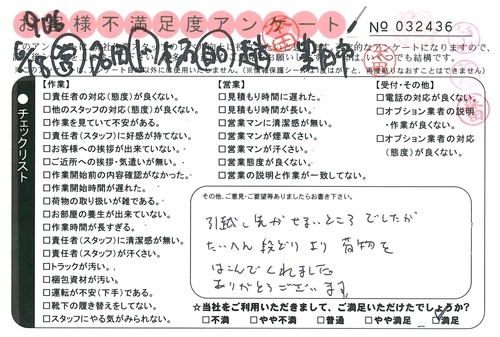 お客様不満足度アンケート
№ 032436
チェックリスト
【作業】
□責任者の対応(態度)が良くない。
□他のスタッフの対応(態度)が良くない。
□作業を見ていて不安がある。
□責任者(スタッフ)に好感が持てない。
□お客様への挨拶が出来ていない。
□ご近所への挨拶・気遣いが無い。
□作業開始前の内容確認がなかった。
□作業開始時間が遅れた。
□荷物の取り扱いが雑である。
□お部屋の養生が出来ていない。
□作業時間が長すぎる。
□責任者(スタッフ)に清潔感が無い。
□責任者(スタッフ)が汗くさい。
□トラックが汚い。
□梱包資材が汚い。
□運転が不安(下手)である。
□靴下の履き替えをしてない。
□スタッフにやる気がみられない。
【営業】
□見積もり時間に遅れた。
□見積もり時間が長い。
□営業マンに清潔感が無い。
□営業マンが煙草くさい。
□営業マンが汗くさい。
□営業態度が良くない。
□営業の説明と作業が一致してない。
【受付・その他】
□電話の対応が良くない。
□オプション業者の説明
・作業が良くない。
□オプション業者の対応
(態度)が良くない。
その他、ご意見・ご要望等ありましたらお書き下さい。
引越し先が せまいところ でしたが
たいへん 段どり より 荷物を
はこんでくれました。
ありがとうございます。
☆当社をご利用いただきまして、ご満足いただけたでしょうか?
□不満 □やや不満 □普通 □やや満足 ☑満足